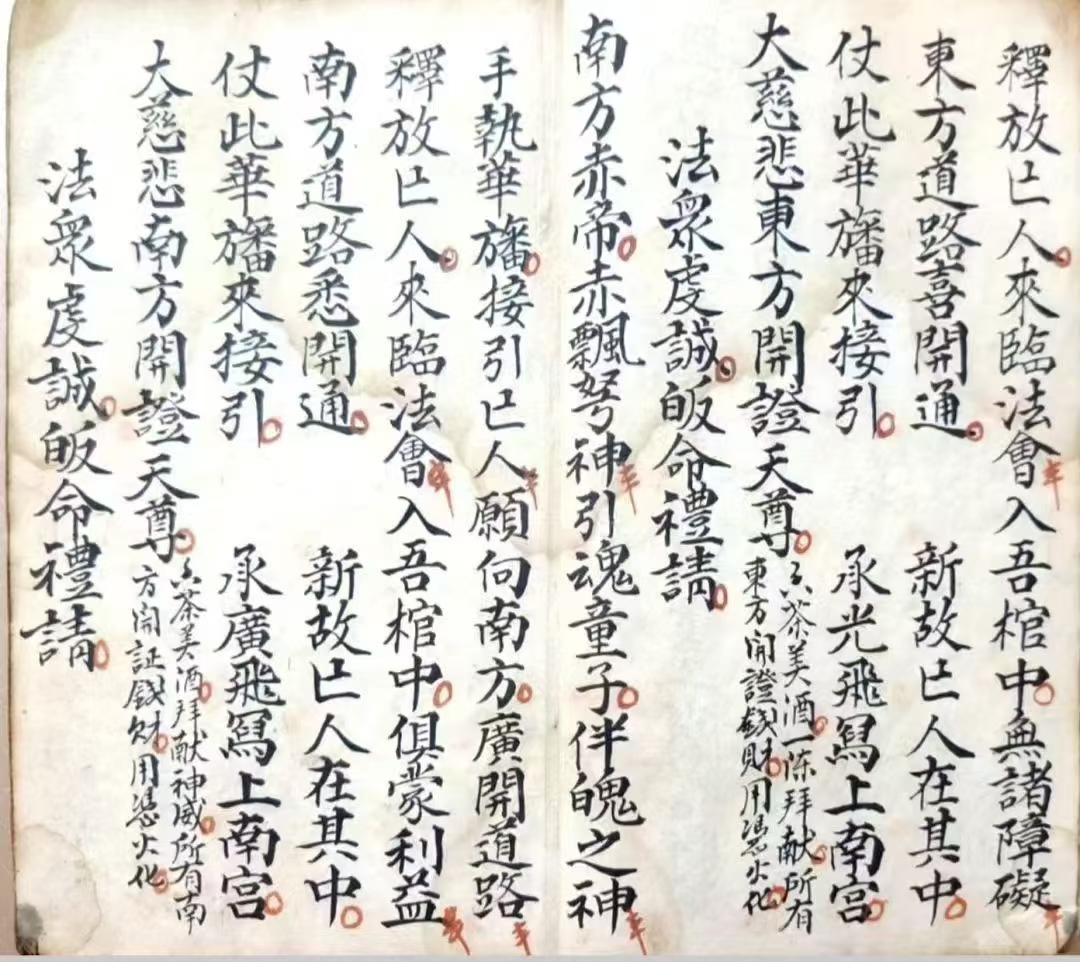 釋放亡人來臨法會入吾棺中無諸障礙
東方道路喜開通 新故亡人在其中
仗此華旛來接引 承光飛舄上南宮
大慈悲東方開證天尊 香茶美酒一陳拜献所有
東方開證錢財用憑火化
法眾虔誠皈命禮請
南方赤帝赤飄弩神引魂童子伴魄之神
手執華旛接引亡人願向南方廣開道路
釋放亡人來臨法會入吾棺中俱蒙利益
南方道路悉開通 新故亡人在其中
仗此華旛來接引 承廣飛舄上南宮
大慈悲南方開證天尊 香茶美酒拜献神威所有南
方開証錢財用憑火化
法眾虔誠皈命禮請